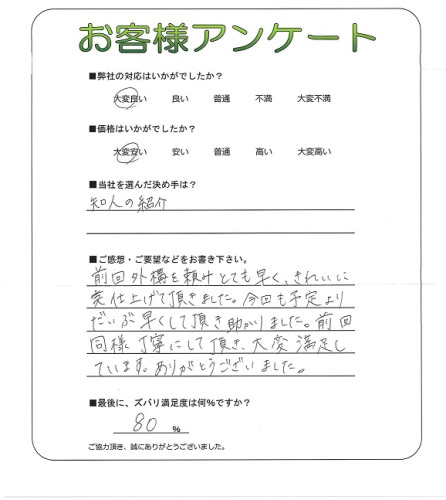 お客様アンケート
■弊社の対応はいかがでしたか？
大変良い 良い 普通 不満 大変不満
■価格はいかがでしたか？
大変安い 安い 普通 高い 大変高い
■当社を選んだ決め手は？
知人の紹介
■ご感想・ご要望などをお書き下さい。
前回外構を頼けとても早く、きれいに
仕上げて頂きました。今回も予定より
だいぶ早くして頂き助かりました。前回
同様丁寧にして頂き、大変満足し
ています。ありがとうございました。
■最後に、ズバリ満足度は何%ですか？
80 %
ご協力頂き、誠にありがとうございました。